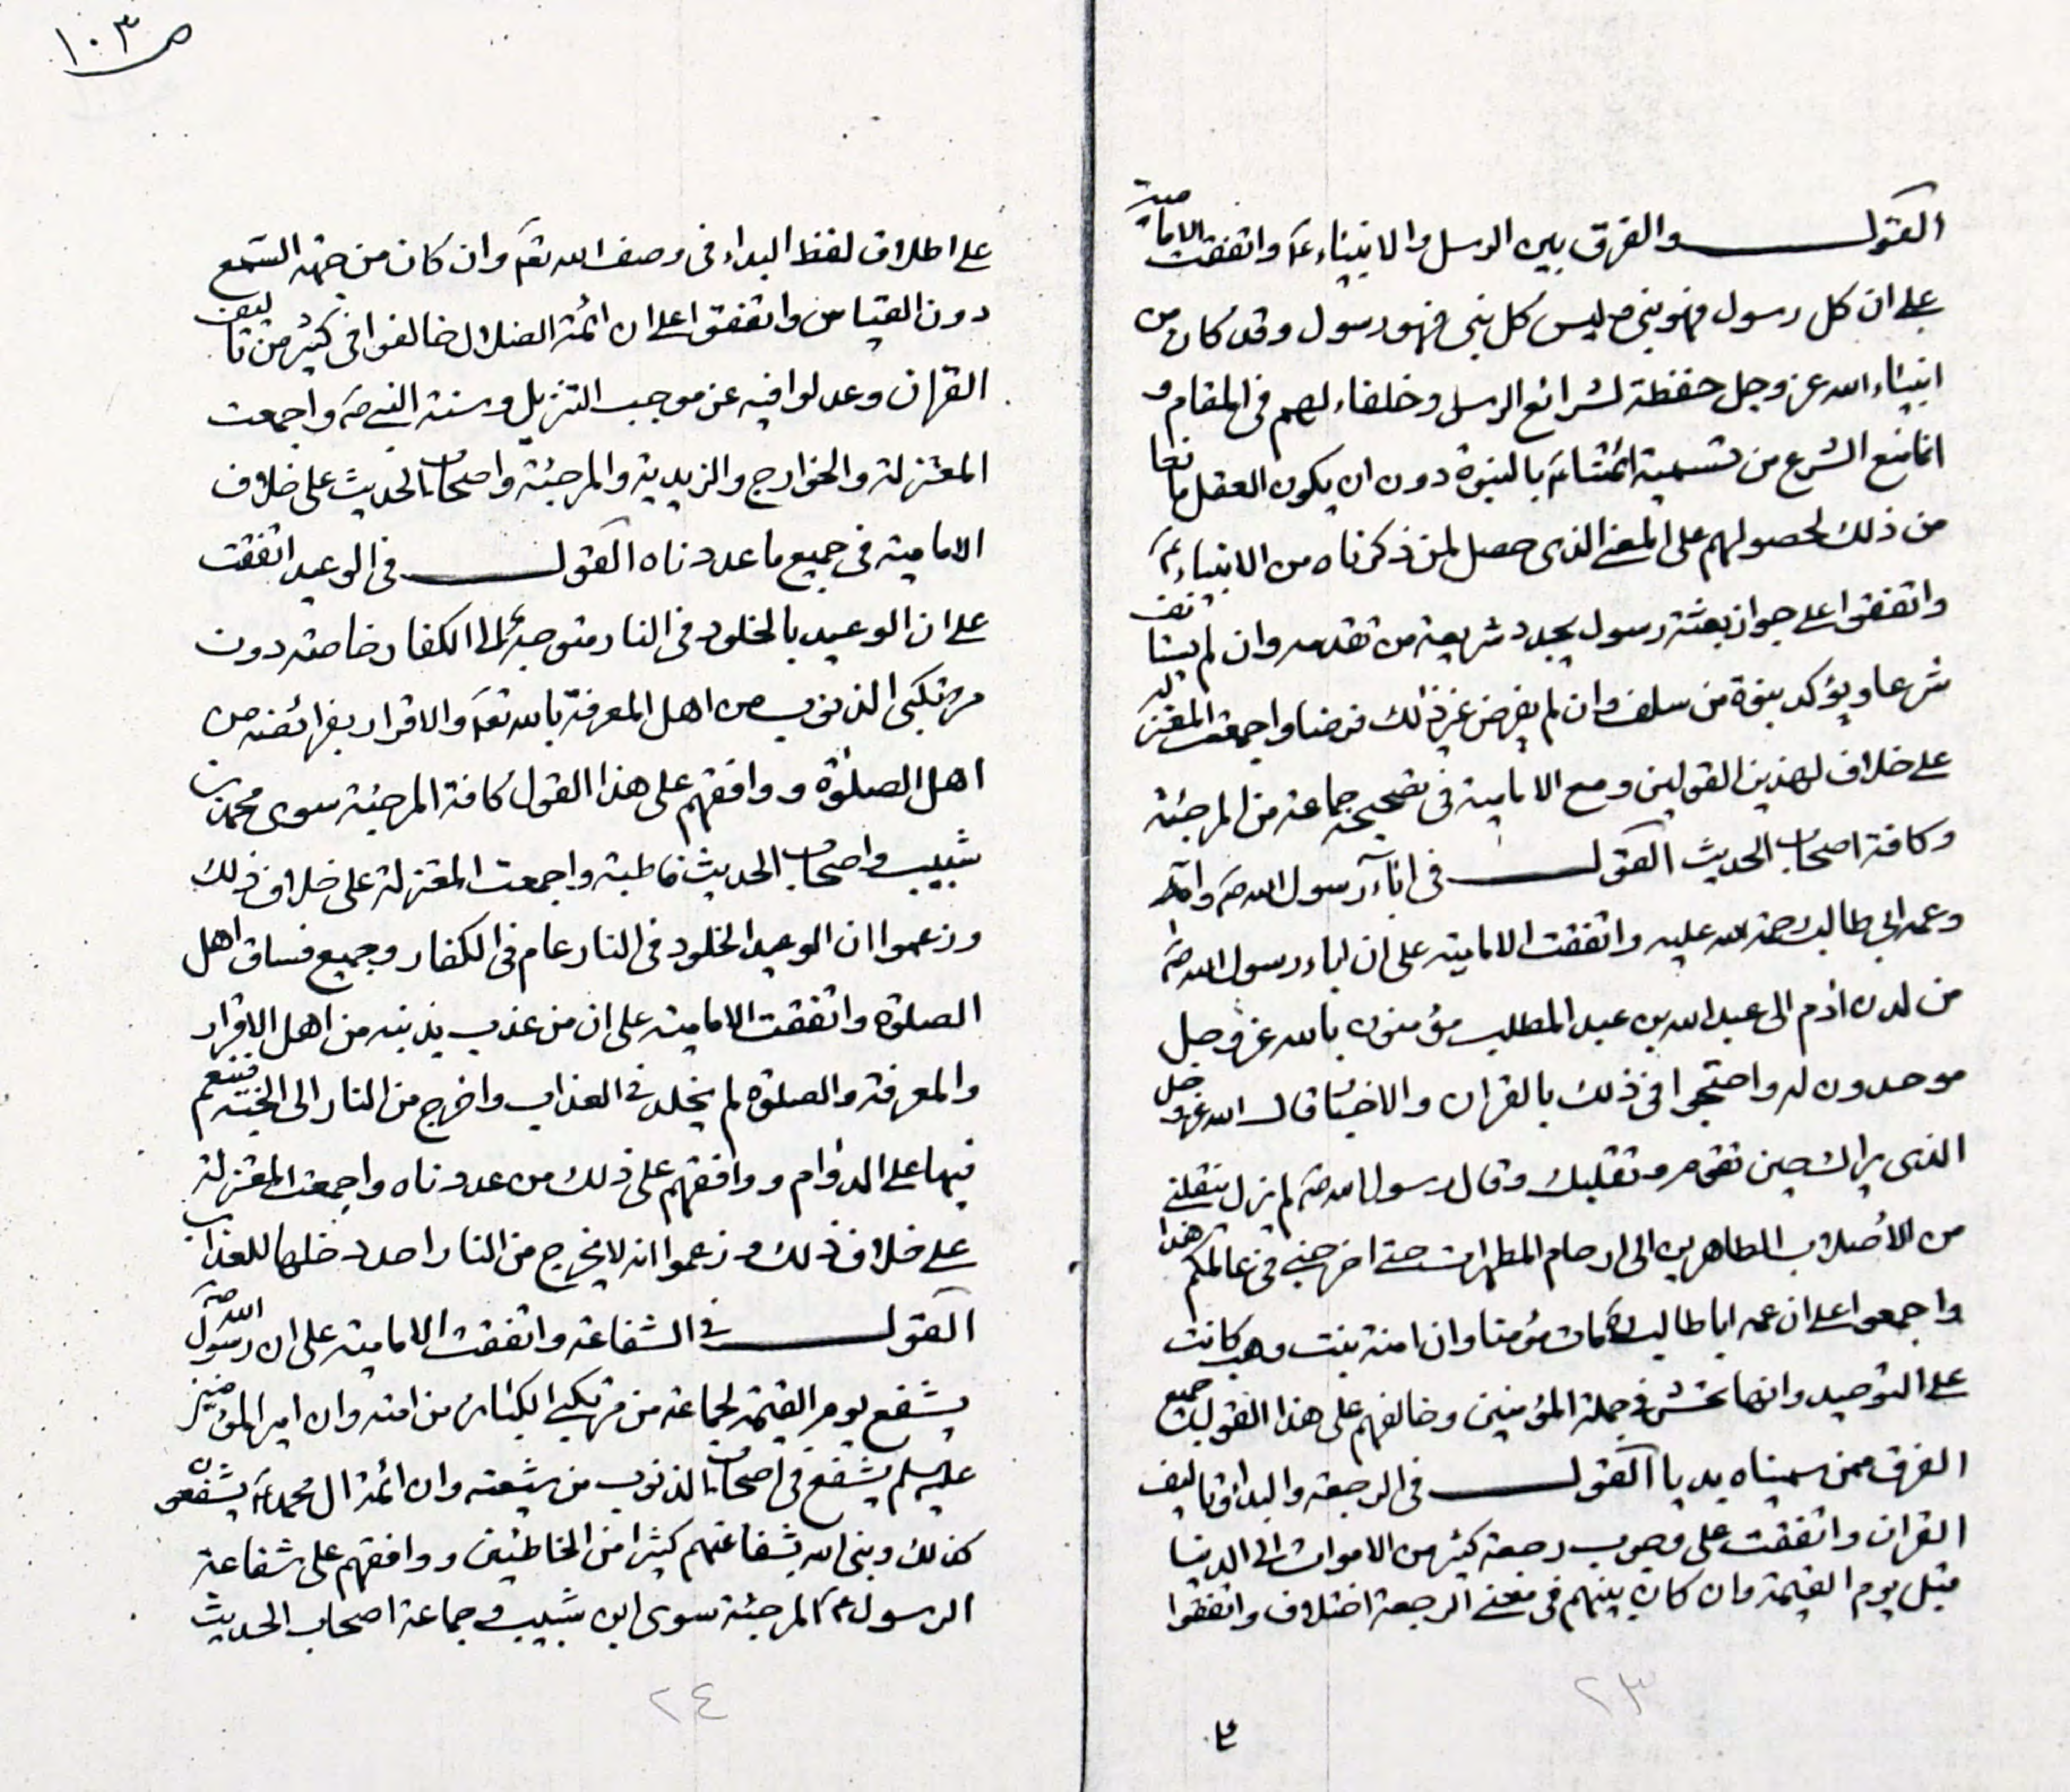 القول والفرق بين الرسل والانبياء عم واتفقت الامامية
على ان كل رسول فهو نبي وليس كل نبي فهو رسول وقد كان من
انبياء الله عز وجل حفظة لشرائع الرسل وخلفاء لهم في المقام و
انما منع الشرع من تسمية ائمتنا عم بالنبوة دون ان يكون العقل مانعا
من ذلك لحصولهم على المعنى الذى حصل لمن ذكرناه من الانبياء عم
واتفقوا على جواز بعثة رسول يجدد شريعة من تقدمه وان لم يستانف
شرعا ويؤكد بنبوة من سلف وان لم يفرض غير ذلك فرضا واجمعت المعتزلة
على خلاف لهذين القولين ومع الامامية في تصحيحه جماعة من المرجئة
وكافة اصحاب الحديث القول في اباء رسول الله ص وامه
وعمه ابي طالب رحمة الله عليه واتفقت الامامية على ان اباء رسول الله ص
من لدن ادم الى عبد الله بن عبد المطلب مؤمنون بالله عز وجل
موحدون له واحتجوا في ذلك بالقران والاخبار قال الله عز وجل
الذى يراك حين تقوم وتقلبك وقال رسول الله ص لم يزل ينقلني
من الأصلاب الطاهرين الى ارحام المطهرات حتى اخرجني في عالمكم هذا
واجمعوا على ان عمه ابا طالب ره مات مؤمنا وان امنة بنت وهب كانت
على التوحيد وانها تحشر في جملة المؤمنين وخالفهم على هذا القول جميع
الفرق ممن سميناه بديا القول في الرجعة والبداء وتاليف
القران واتفقت على وجوب رجعة كثير من الاموات الى الدنيا
قبل يوم القيمة وان كان بينهم في معنى الرجعة اختلاف واتفقوا
٢٣
٤
ص ١٠٣
على اطلاق لفظ البداء في وصف الله تعم وان كان من جهة السمع
دون القياس واتفقوا على ان ائمة الضلال خالفوا في كثير من تاليف
القران وعدلوا فيه عن موجب التنزيل وسنة النبي ص واجمعت
المعتزلة والخوارج والزيدية والمرجئة واصحاب الحديث على خلاف
الامامية في جميع ما عددناه القول في الوعيد اتفقت
على ان الوعيد بالخلود في النار متوجه الى الكفار خاصة دون
مرتكبي الذنوب من اهل المعرفة بالله تعم والاقرار بفرائضه من
اهل الصلوة ووافقهم على هذا القول كافة المرجئة سوى محمد بن
شبيب واصحاب الحديث قاطبة واجمعت المعتزلة على خلاف ذلك
وزعموا ان الوعيد الخلود في النار عام في الكفار وجميع فساق اهل
الصلوة واتفقت الامامية على ان من عذب بذنبه من اهل الاقرار
والمعرفة والصلوة لم يخلد في العذاب واخرج من النار الى الجنة فينعم
فيها على الدوام ووافقهم على ذلك من عددناه واجمعت المعتزلة
على خلاف ذلك وزعموا انه لا يخرج من النار احد دخلها للعذاب
القول في الشفاعة واتفقت الامامية على ان رسول الله ص
يشفع يوم القيمة لجماعة من مرتكبي الكبائر من امته وان امير المؤمنين
عليه سلم يشفع في اصحاب الذنوب من شيعته وان ائمة ال محمد عم يشفعون
كذلك وينجى الله بشفاعتهم كثيرا من الخاطئين ووافقهم على شفاعة
الرسول ع المرجئة سوى ابن شبيب وجماعة اصحاب الحديث
٢٤